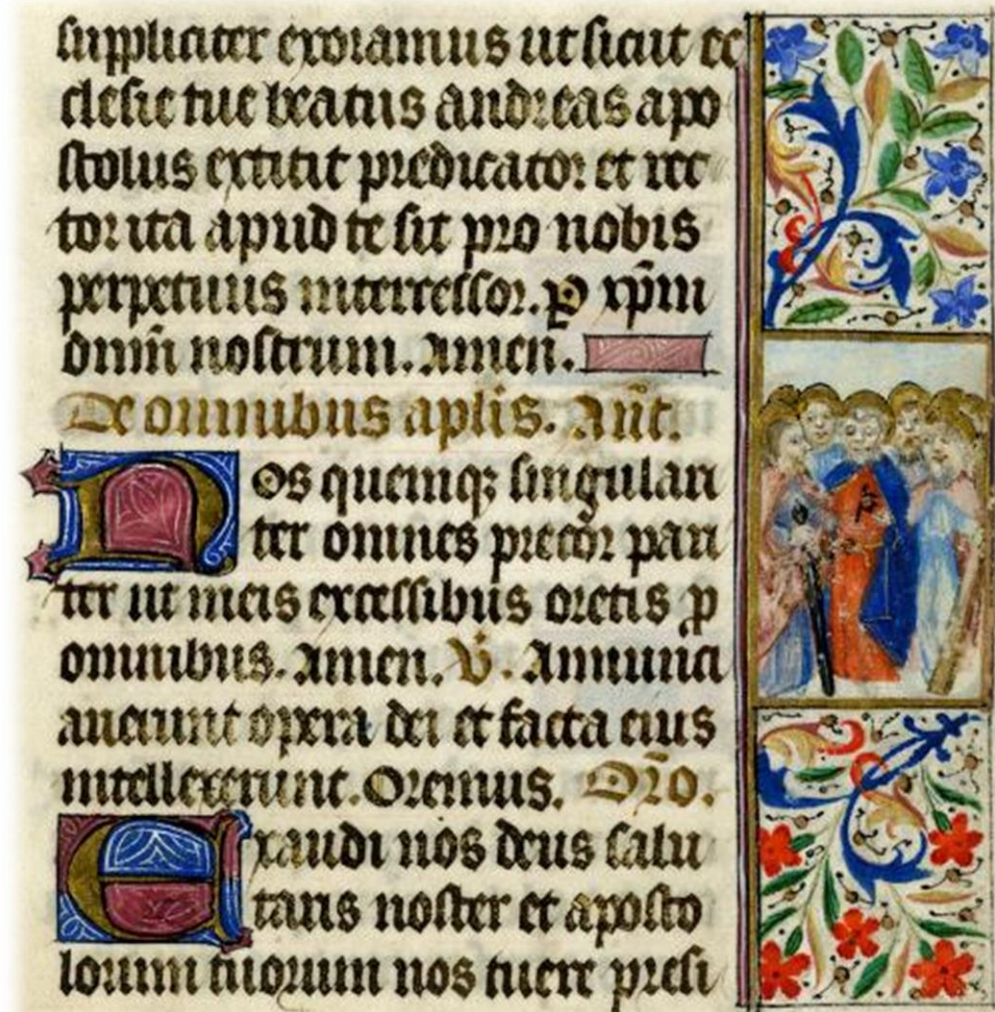 suppliciter exoramus ut sicut ec
clesie tue beatus andreas apo
stolus extitit predicator et rec
tor ita apud te sit pro nobis
perpetuus intercessor. ꝑ xp̄m
dnm̄ nostrum. Amen.
De omnibus aplis. Ant̄.
Nos quemqꝫ singulari
ter omnes precor pari
ter ut meis excessibus oretis ꝓ
omnibus. Amen. V̄. Annunci
auerunt opera dei et facta eius
intellexerunt. Oremus. Or̄o.
Exaudi nos deus salu
taris noster et aposto
lorum tuorum nos tuere presi